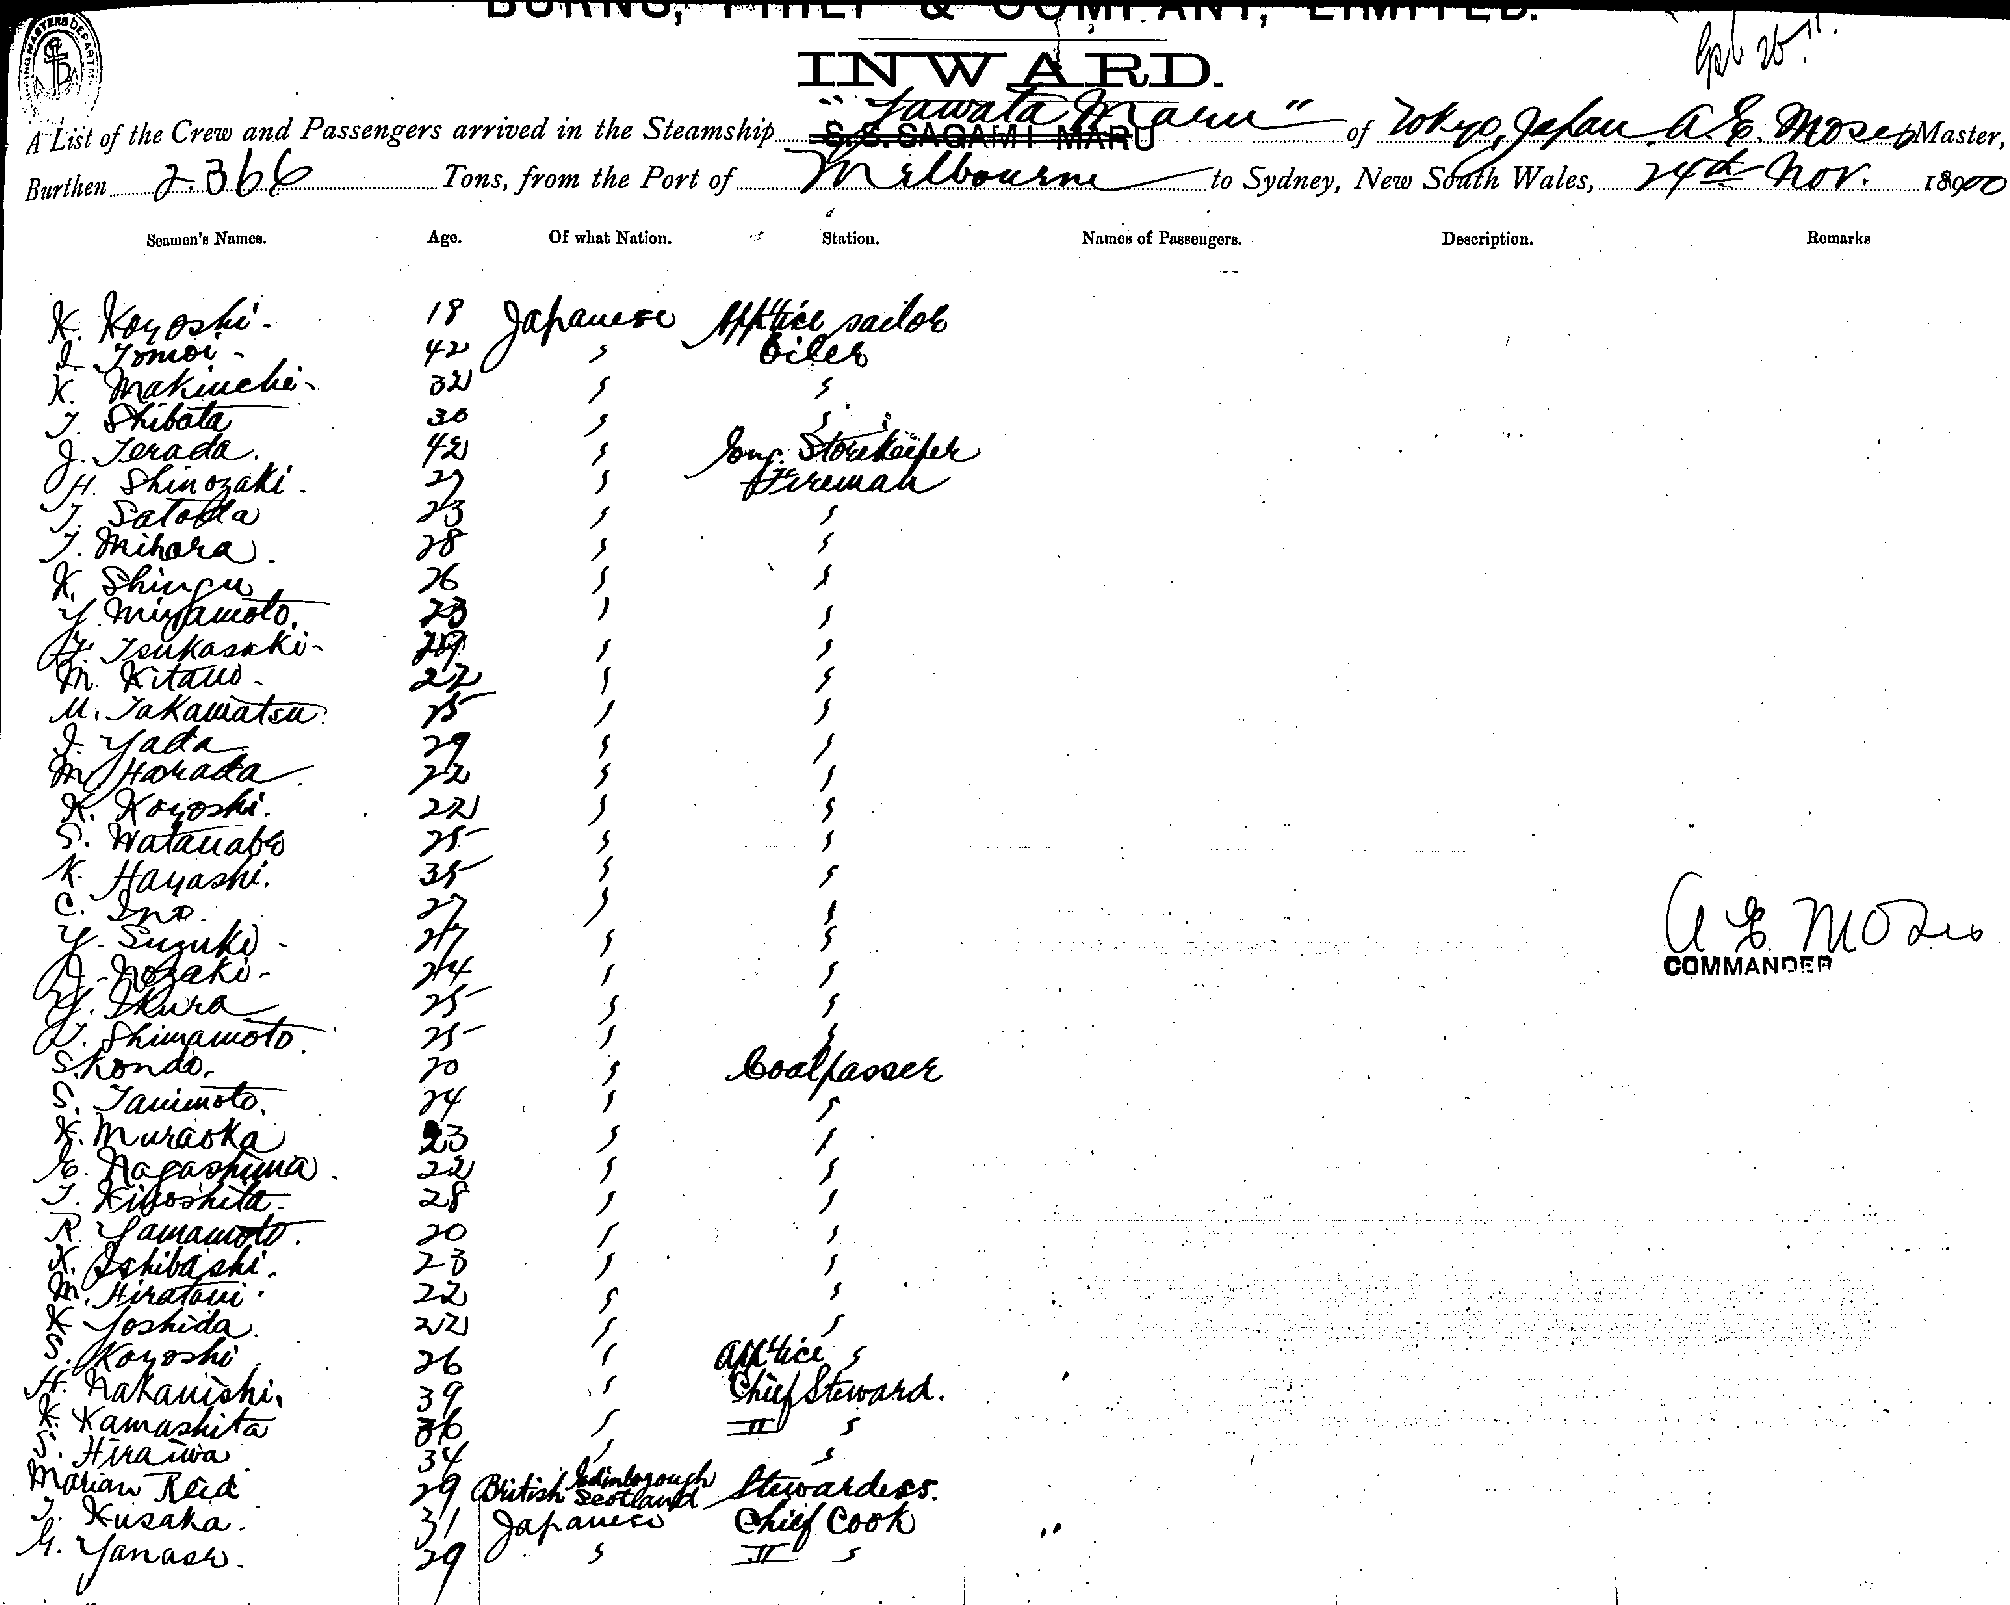 BURNS, PHILP & COMPANY, LIMITED.
INWARD.
"Yawata Maru"
A List of the Crew and Passengers arrived in the Steamship S.S. SAGAMI MARU of Tokyo, Japan A. E. Moses Master,
Burthen 2.366 Tons, from the Port of Melbourne to Sydney, New South Wales, 24th Nov. 18900
Seamen's Names. Age. Of what Nation. Station. Names of Passengers. Description. Remarks
K. Koyoshi. 18 Japanese App'tice sailor
I. Tomoi 42 " Oiler
K. Makiuchi 32 " "
T. Shibata 30 " "
J. Terada. 42 " Eng. Storekeeper
H. Shinozaki. 27 " Fireman
T. Satoda 23 " "
T. Mihara. 28 " "
K. Shingu 26 " "
Y. Miyamoto. 23 " "
Tsukasaki " "
M. Kitano 22 " "
M. Takamatsu 25 " "
I. Yada 29 " "
M. Harada 22 " "
K. Koyoshi. 22 " "
S. Watanabe 25 " "
K. Hayashi. 35 " "
C. Ino. 27 " "
Y. Suzuki 27 " "
Nozaki 24 " "
Y. Ikura 25 " "
T. Shimamoto. 25 " "
S. Kondo. 20 " Coalpasser
S. Tanimoto. 24 " "
K. Muraoka 23 " "
Nagashima 22 " "
T. Kinoshita 28 " "
R. Yamamoto. 20 " "
K. Ishibashi. 23 " "
M. Hiratani 22 " "
K. Yoshida. 22 " "
S. Koyoshi 26 " App'tice "
H. Nakanishi. 39 " Chief Steward.
K. Kamashita 36 " II "
S. Hiraiwa 34 " "
Marian Reid 29 British Edinborough Scotland Stewardess.
T. Kusaka. 31 Japanese Chief Cook
Yanase. 29 " II "
A E Moses
COMMANDER